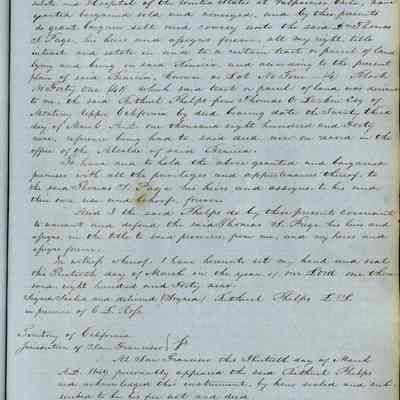 State and Hospital of the United States at Valparaiso Chile, have
granted bargained sold and conveyed, and by these presents
do grant bargain sell and convey unto the said Dr Thomas
S. Page, his heirs and assigns forever, all my right title
interest and estate in and to a certain tract or parcel of land
lying and being in said Benicia, and according to the present
plan of said Benicia, known as Lot No Four (4) Block
No Forty One (41) which said tract or parcel of land was deeded
to me, the said Phelps from Thomas O. Larkin Esq of
Monterey Upper California by deed bearing date the
day of March A.D. one thousand eight hundred and Forty
nine, reference being had to said deed now on record in the
office of the Alcalde of said Benicia.
To have and to hold the above granted and bargained
premises with all the privileges and appurtenances thereof to
the said Thomas S. Page his heirs and assigns to his and
their own use and behoof, forever.
And I the said Phelps do by these presents covenant
to warrant and defend the said Thomas S. Page his heirs and
assigns, in the title to said premises, from me, and my heirs and
assigns forever.
In witness whereof I have hereunto set my hand and seal
this Thirtieth day of March in the year of our Lord one thou
sand eight hundred and Forty nine.
Signed Sealed and delivered (Signed) Phelps L.S.
in presence of
Territory of California
Jurisdiction of San Francisco } ss
At San Francisco this Thirtieth day of March
A.D. 1849 personally appeared the said Phelps
and acknowledged this instrument, by him sealed and sub-
scribed to be his free act and deed